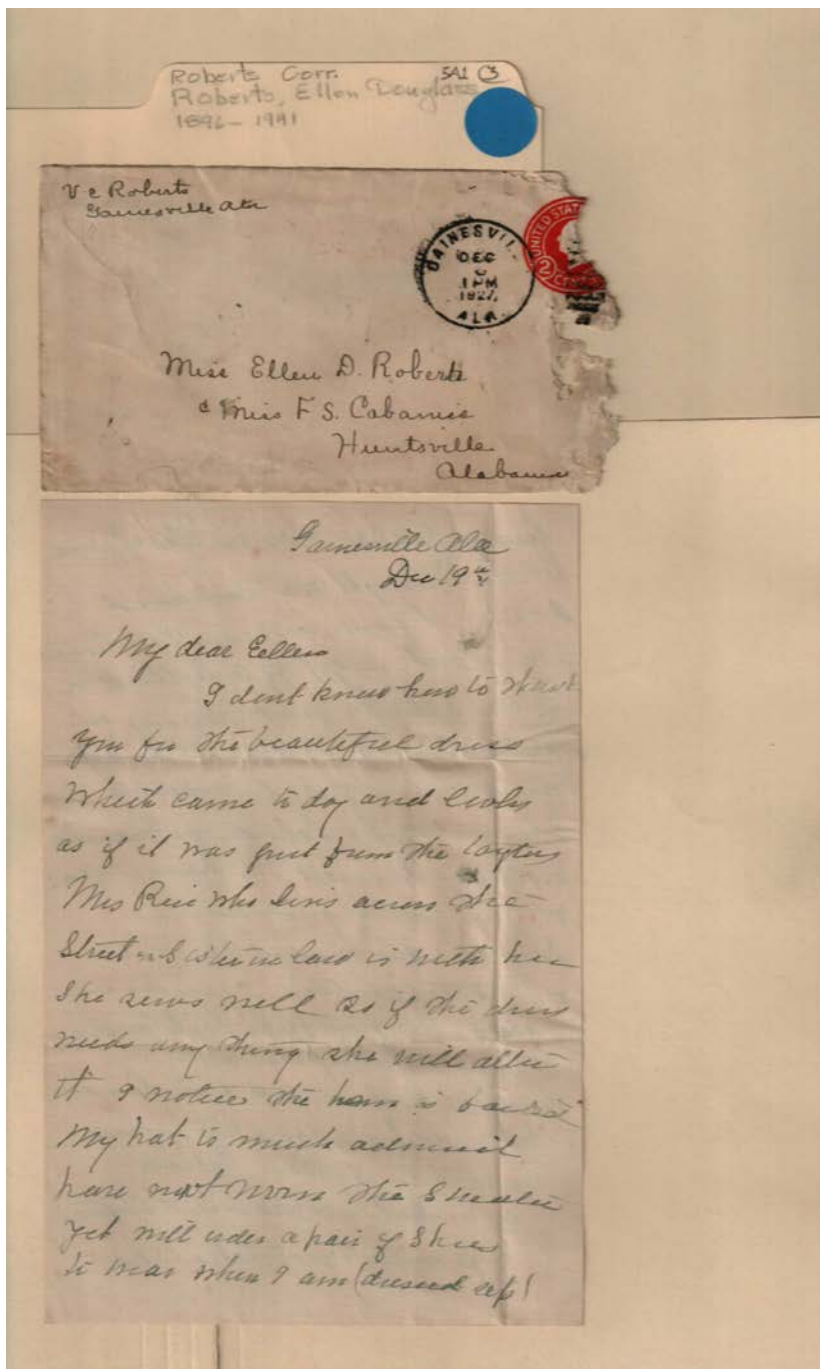 Roberts Corr. 5A1 C3
Roberts, Ellen Douglass
1896 - 1941
V C Roberts
Gainesville Ala
GAINESVIL
DEC
1 PM
1927
ALA.
UNITED STAT
2 CENTS
Miss Ellen D. Roberts
c Miss F S. Cabaniss
Huntsville
Alabama
Gainesville Ala
Dec 19th
My dear Ellen
I dont know how to thank
you for the beautiful dress
which came to day and looks
as if it was just from the
Mrs Rice who lives across the
Street Sister in law is with her
She sews well so if the dress
needs any thing she will alter
it I notice the hem is basted
My hat is much admired
have not worn the Sweater
yet will order a pair of Shoes
to wear when I am (dressed up!